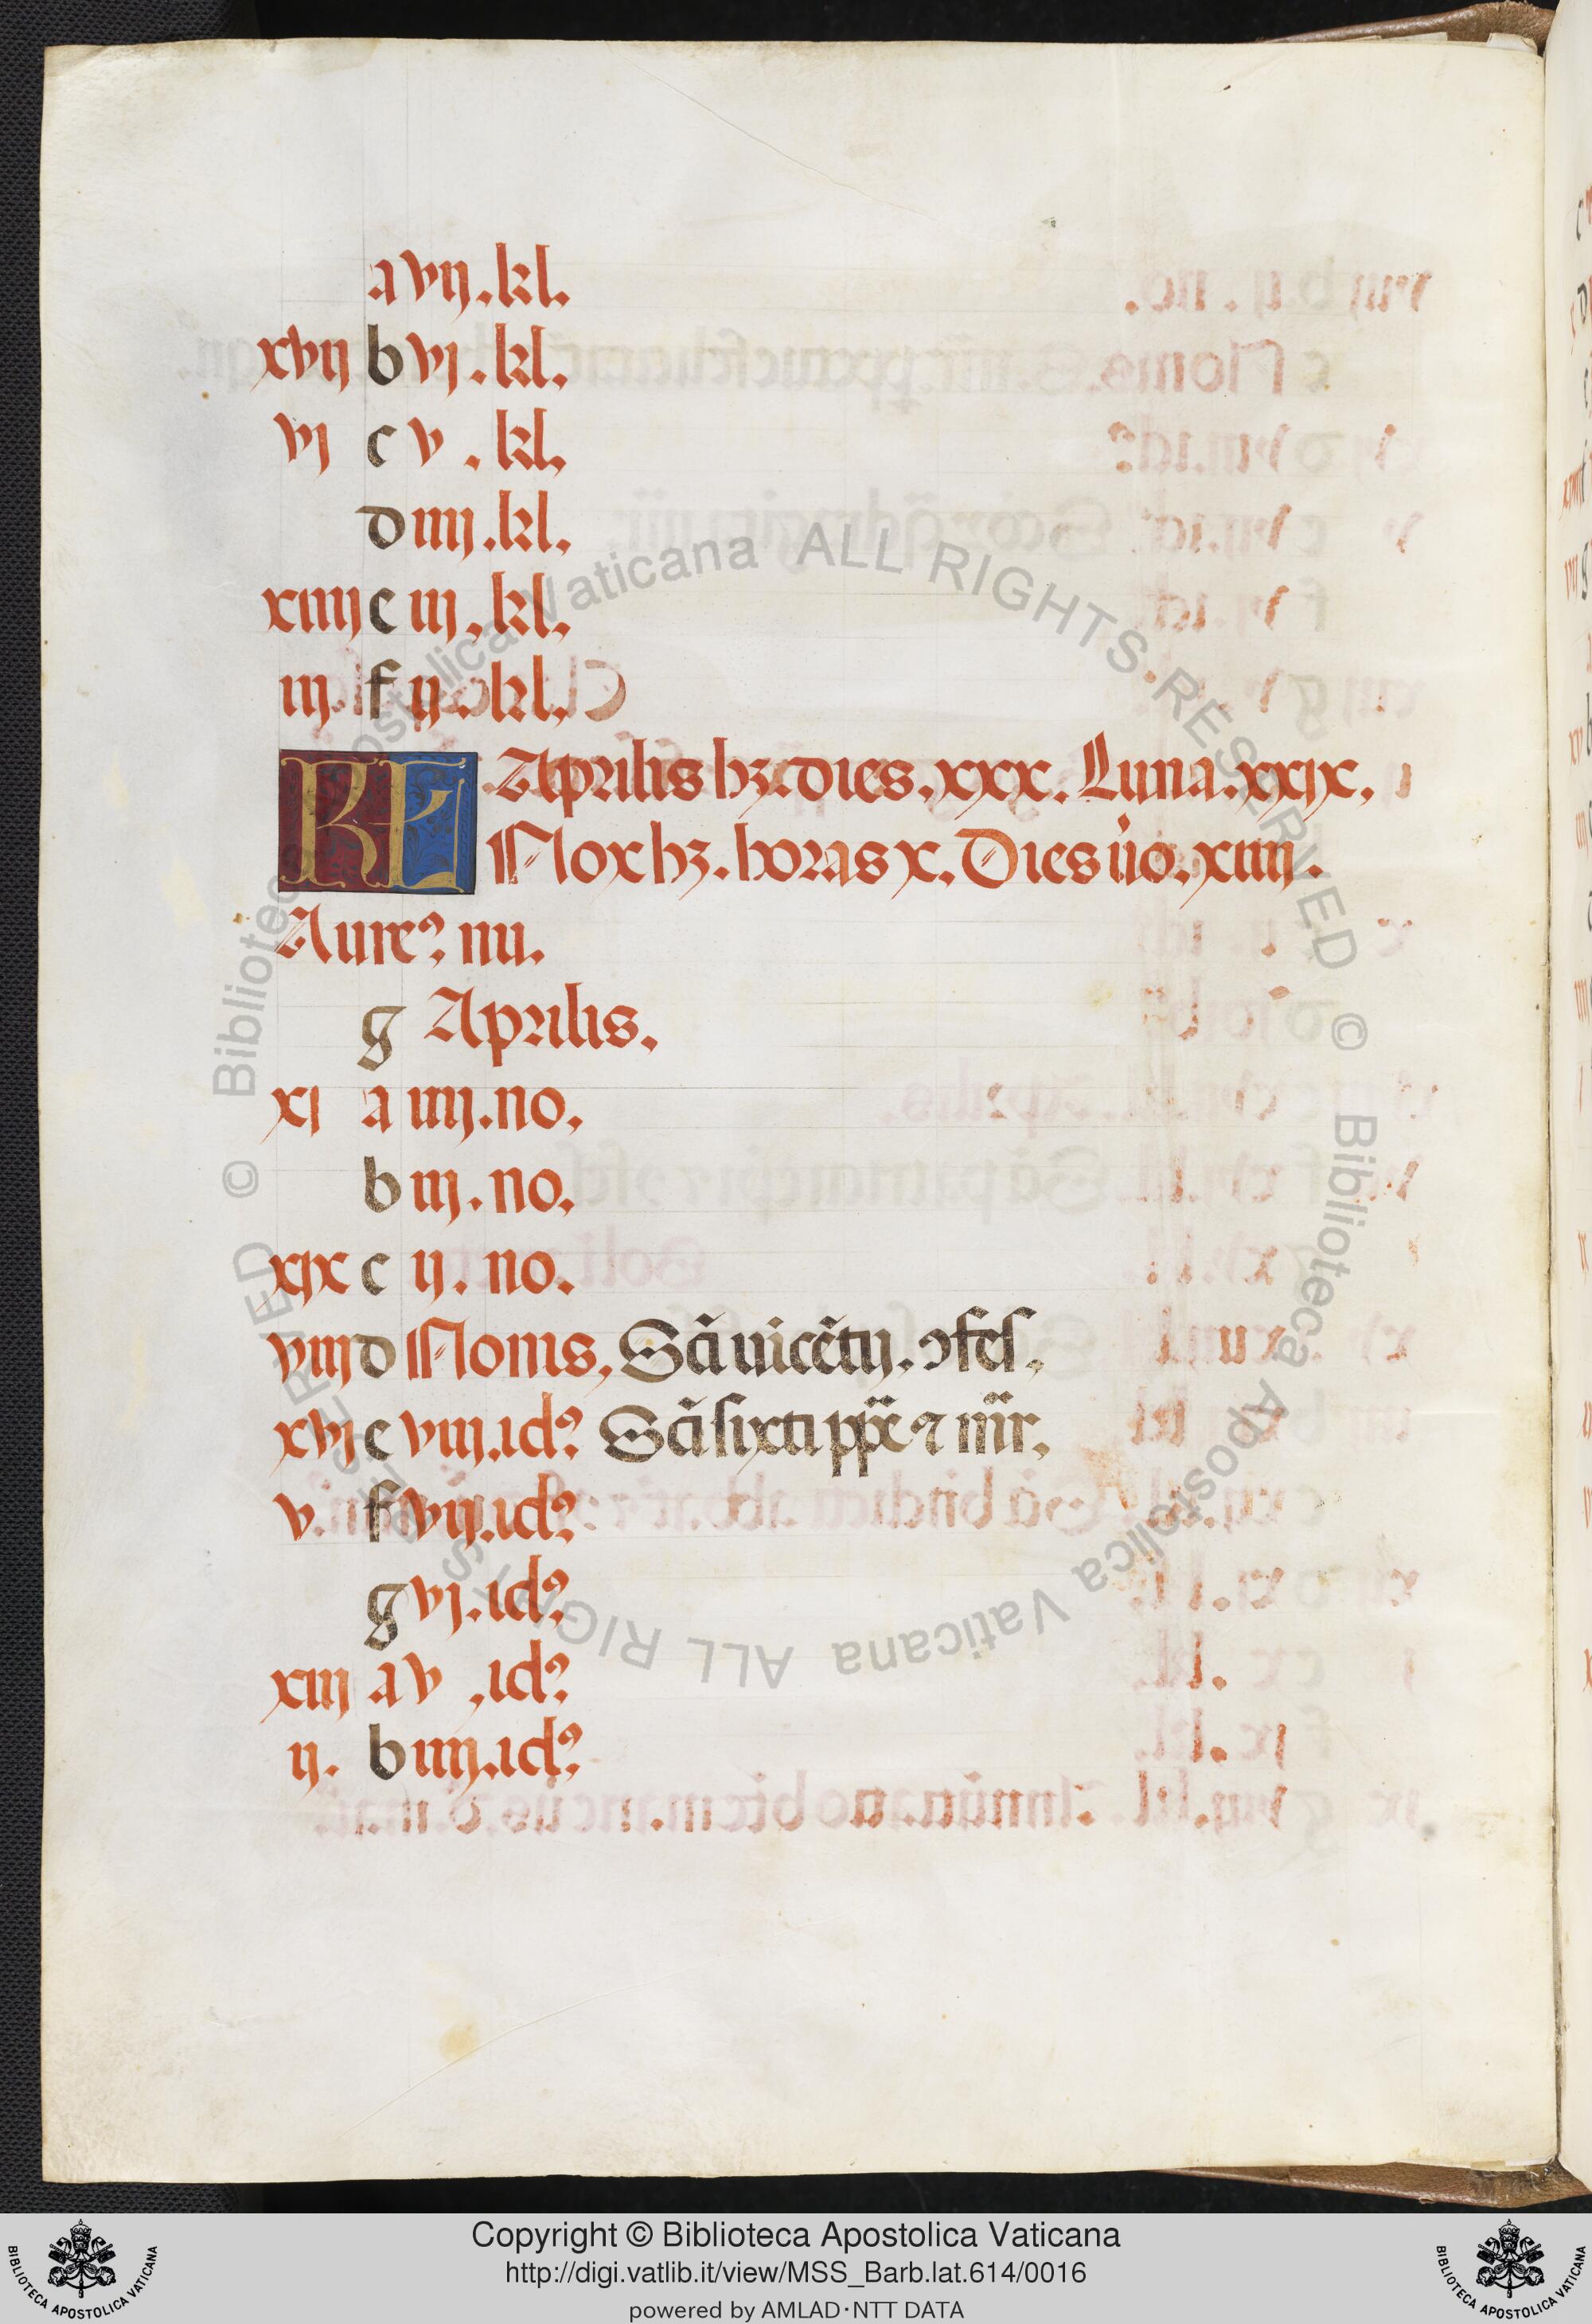 a vij . kl.
xvij b vj . kl.
vj c v . kl.
d iiij . kl.
xiiij e iij . kl.
iij . f ij . kl.
KL Aprilis hꝫ . dies . xxx . Luna . xxjx .
Nox hꝫ . horas x . Dies ůo . xiiij .
Aureꝰ nu .
g Aprilis .
xj a iiij . no .
b iij . no .
xjx c ij . no .
viij d Nonis . Scĩ uicẽtij . ↄfeſ .
xvj e viij . idꝰ Scĩ sixti pp̃e ⁊ mr̃ .
v . f vij . idꝰ
g vj . idꝰ
xiij a v . idꝰ
ij . b iiij . idꝰ
© Biblioteca Apostolica Vaticana ALL RIGHTS RESERVED © Biblioteca Apostolica Vaticana ALL RIGHTS RESERVED
Copyright © Biblioteca Apostolica Vaticana
http://digi.vatlib.it/view/MSS_Barb.lat.614/0016
powered by AMLAD·NTT DATA
BIBLIOTECA APOSTOLICA VATICANA
BIBLIOTECA APOSTOLICA VATICANA